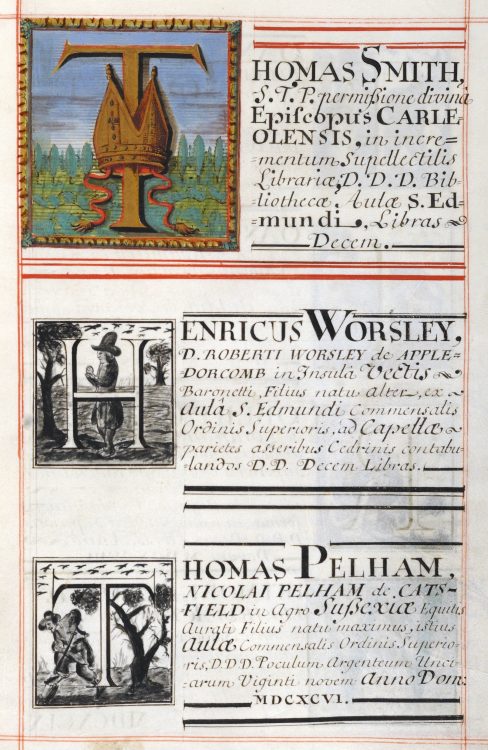 THOMAS SMITH,
S. T. P. permiſſione divina
Epiſcopus CARLE-
OLENSIS, in incre-
mentum Supellectilis
Librariæ, D. D. D. Bib-
liothecæ Aulæ S. Ed-
mundi, Libras
Decem.
HENRICUS WORSLEY,
D. ROBERTI WORSLEY de APPLE-
DORCOMB in Inſulâ Vectis
Baronetti, Filius natu Alter, ex
Aulâ S. Edmundi Commenſalis
Ordinis Superioris, ad Capellæ
parietes aſseribus Cedrinis contabu-
landos D.D. Decem Libras.
THOMAS PELHAM,
NICOLAI PELHAM de CATS-
FIELD in Agro Suſsexiæ Equitis
Aurati Filius natu maximus, iſtius
Aulæ Commenſalis Ordinis Superio-
ris, D.D.D. Poculum Argenteum Unci-
arum Viginti novem Anno Dom:
MDCXCVI.